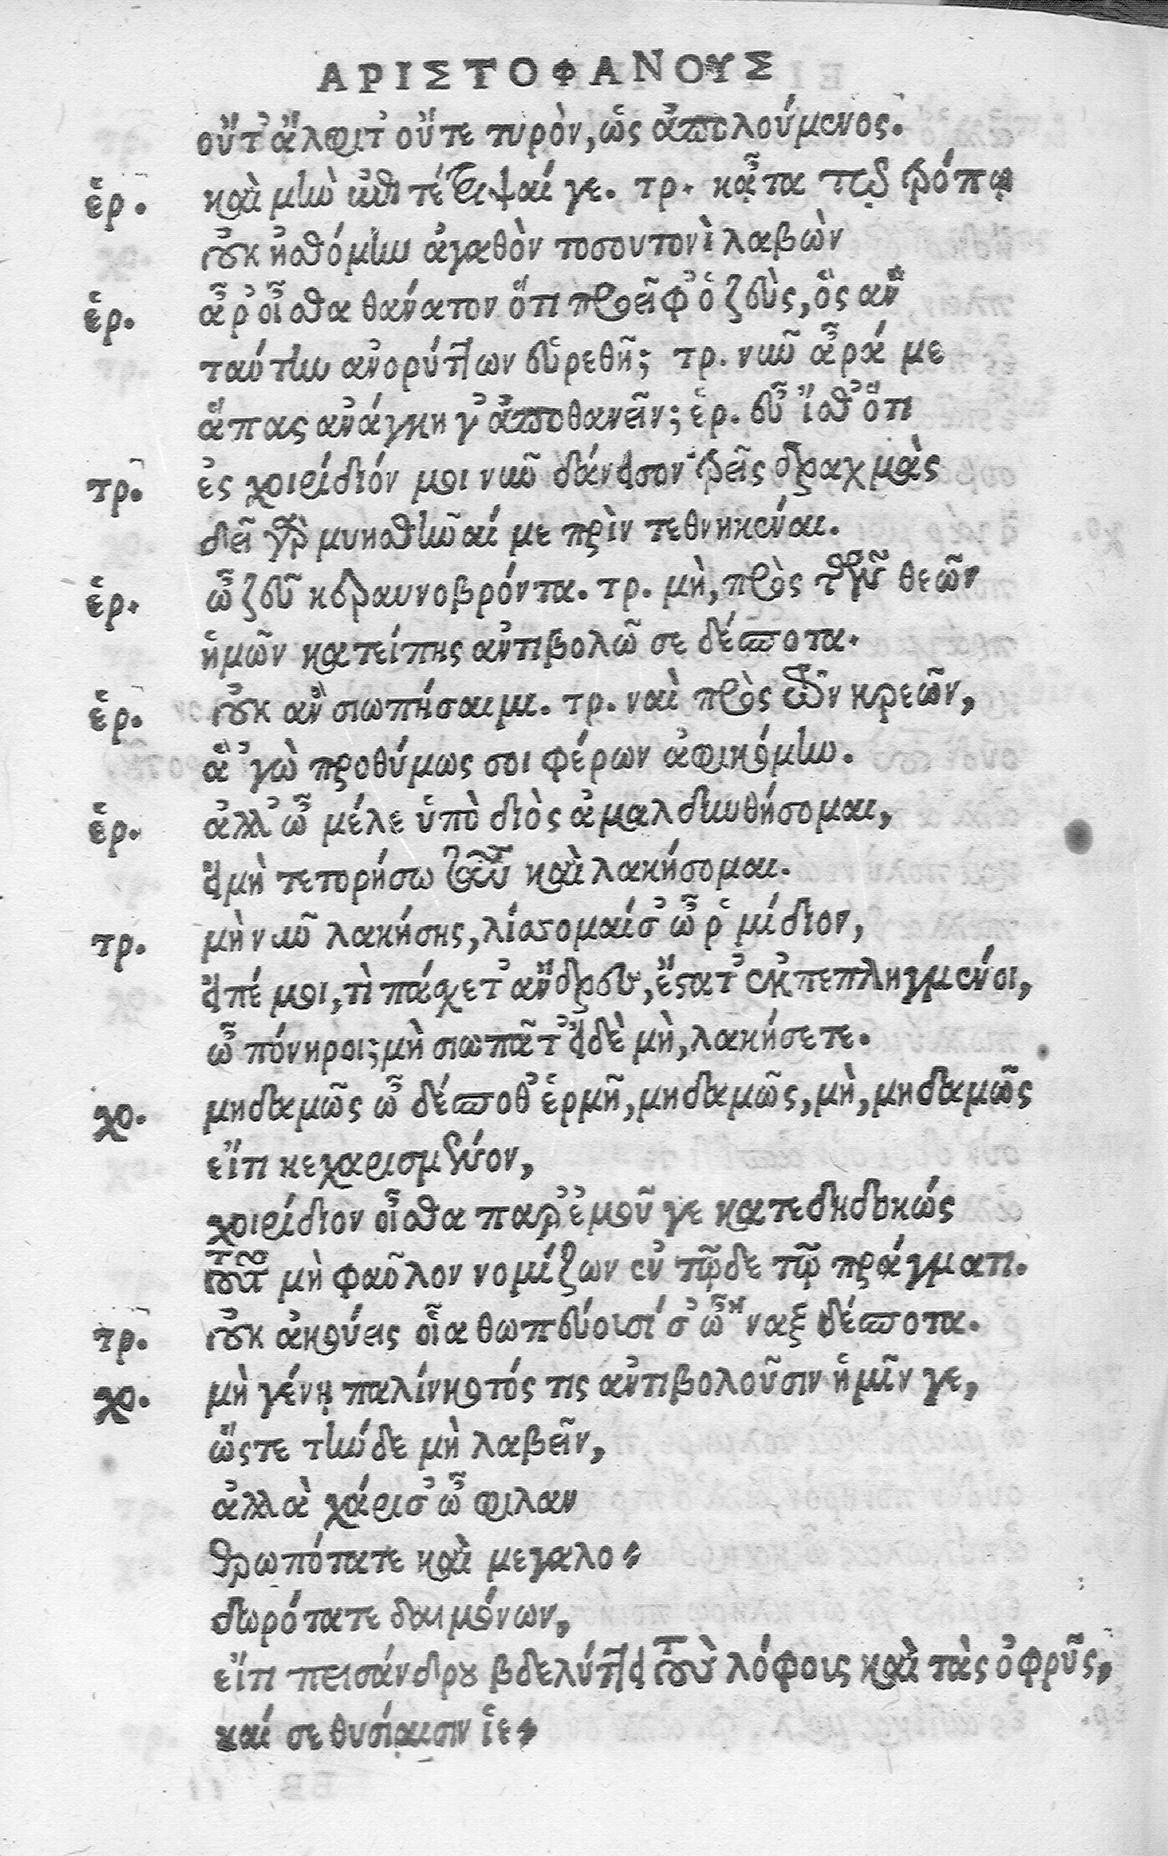 ΑΡΙΣΤΟΦΑΝΟΥΣ
οὔτ' ἄλφιτ' οὔτε τυρὸν, ὡς ἀπολούμενος.
ἑρ. καὶ μὴν ἐπιτέτριψαί γε. τρ. κᾆτα τῷ τρόπῳ
οὐκ ᾐσθόμην ἀγαθὸν τοσουτονὶ λαβὼν
ἑρ. ἆρ' οἶσθα θάνατον ὅτι προεῖφ' ὁ ζεὺς, ὃς ἂν
ταύτην ἀνορύττων εὑρεθῇ; τρ. νῦν ἆρά με
ἅπας ἀνάγκη γ' ἀποθανεῖν; ἑρ. εὖ ἴσθ' ὅτι
τρ. ἐς χοιρίδιόν μοι νῦν δάνεισον τρεῖς δραχμὰς
δεῖ γὰρ μυηθῆναί με πρὶν τεθνηκέναι.
ἑρ. ὦ ζεῦ κεραυνοβρόντα. τρ. μὴ, πρὸς τῶν θεῶν
ἡμῶν κατείπῃς ἀντιβολῶ σε δέσποτα.
ἑρ. οὐκ ἂν σιωπήσαιμι. τρ. ναὶ πρὸς τῶν κρεῶν,
ἃ 'γὼ προθύμως σοι φέρων ἀφικόμην.
ἑρ. ἀλλ' ὦ μέλε ὑπὸ διὸς ἀμαλδυνθήσομαι,
εἰ μὴ τετορήσω ταῦτα καὶ λακήσομαι.
τρ. μὴ νῦν λακήσῃς, λίσσομαί σ' ὦ ῥμίδιον,
εἰπέ μοι, τὶ πάσχετ' ἄνδρες, ἕστατ' ἐκπεπληγμένοι,
ὦ πόνηροι; μὴ σιωπᾶτ' εἰ δὲ μὴ, λακήσετε.
χο. μηδαμῶς ὦ δέσποθ' ἑρμῆ, μηδαμῶς, μὴ, μηδαμῶς
εἴτι κεχαρισμένον,
χοιρίδιον οἶσθα παρ' ἐμοῦ γε κατεδηδοκώς
τοῦτο μὴ φαῦλον νομίζων ἐν τῷδε τῷ πράγματι.
τρ. οὐκ ἀκούεις οἷα θωπεύουσί σ' ὦ 'ναξ δέσποτα.
χο. μὴ γένῃ παλίγκοτός τις ἀντιβολοῦσιν ἡμῖν γε,
ὥςτε τήνδε μὴ λαβεῖν,
ἀλλὰ χάρισ' ὦ φιλαν
θρωπότατε καὶ μεγαλο-
δωρότατε δαιμόνων,
εἴτι πεισάνδρου βδελύττει τοὺς λόφοις καὶ τὰς ὀφρῦς,
καί σε θυσίαισιν ἱε-